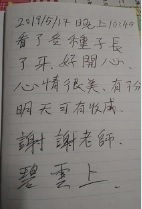 2019/5/17 晚上10:49
看了荳種子長
了牙、好開心、
心情很美、有3分
明天可有收成、
謝謝老師、
碧雲上、